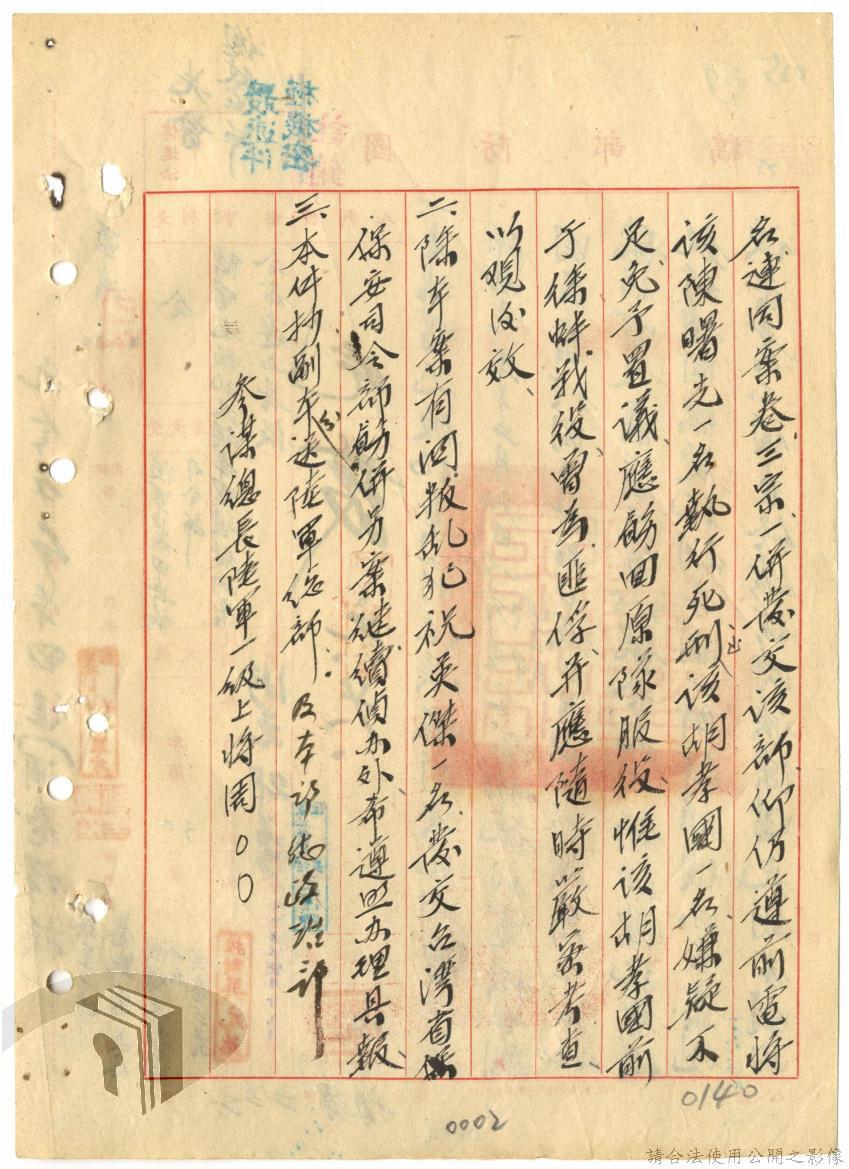 名連同案卷三宗一併發交該部、仰仍遵前電將
該陳曙光一名執行死刑、該胡孝國一名嫌疑不
足、免予置議、應飭回原隊服役、惟該胡孝國前
于徐蚌戰役、曾為匪俘、并應隨時嚴密考查、
以观后效、
二、除本案有関叛乱犯祝英傑一名、發交台湾省
保安司令部飭併另案繼續偵办外、希遵照办理具報、
三、本件抄副本份送陸軍總部、及本部總政治部
參謀總長陸軍一級上将周〇〇
0140
0002
請合法使用公開之影像